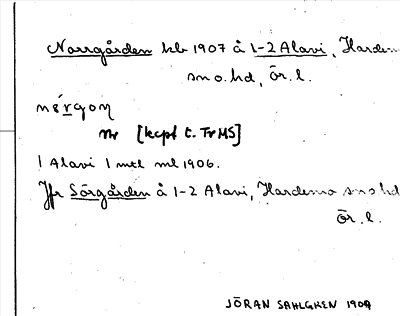 Norrgården kb 1907 å 1-2 Alavi, Hardemo
sn o. hd, Ör. l.
nɷ́rgoɳ
nr [kcpt t. TrMS]
1 Alavi 1 mtl ml 1906.
Jfr Sörgården å 1-2 Alavi, Hardemo sn o hd
Ör. l.
JÖRAN SAHLGREN 1909